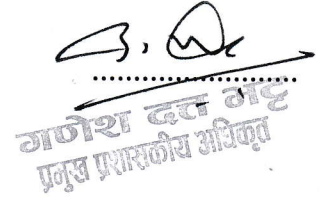 ..............................
गणेश दत्त भट्ट
प्रमुख प्रशासकीय अधिकृत